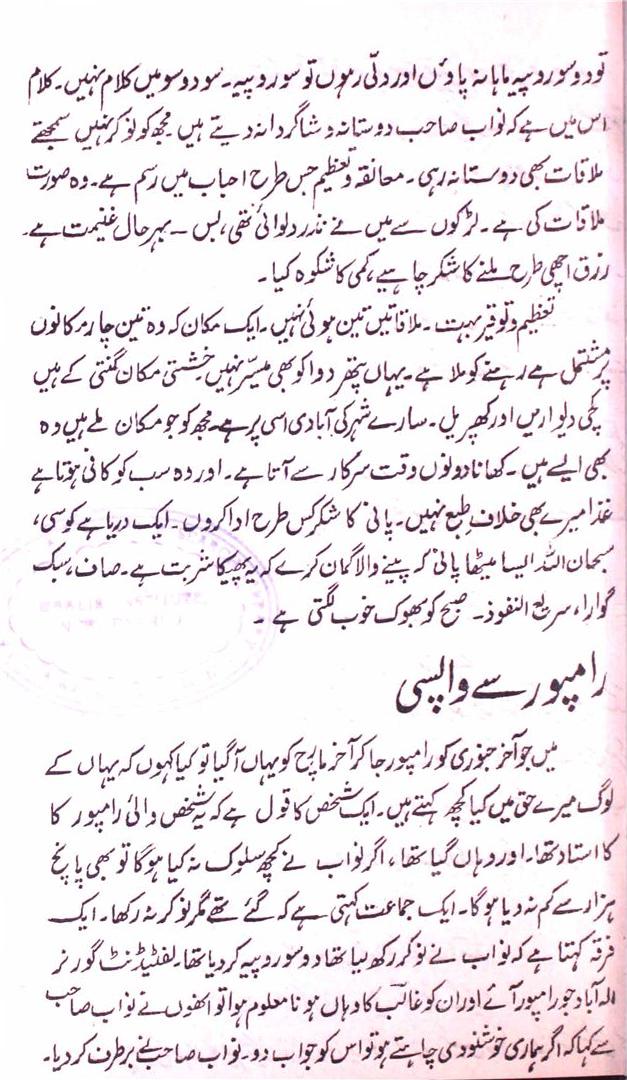 تو دو سو روپیہ ماہانہ پاؤں اور دلّی رہوں تو سو روپیہ۔ سو دو سو میں کلام نہیں۔ کلام
اس میں ہے کہ نواب صاحب دوستانہ و شاگردانہ دیتے ہیں مجھ کو نوکر نہیں سمجھتے
ملاقات بھی دوستانہ رہی۔ معانقہ و تعظیم جس طرح احباب میں رسم ہے۔ وہ صورت
ملاقات کی ہے۔ لڑکوں سے میں نے نذر دلوائی تھی، بس ۔ بہر حال غنیمت ہے۔
رزق اچھی طرح ملنے کا شکر چاہیے، کمی کا شکوہ کیا۔
تعظیم و توقیر بہت۔ ملاقاتیں تین ہوئی نہیں۔ ایک مکان کہ وہ تین چار مکانوں
پر مشتمل ہے رہنے کو ملا ہے۔ یہاں پتھر دوا کو بھی میسّر نہیں خشتی مکان گنتی کے ہیں
کچی دیواریں اور کھپریل۔ سارے شہر کی آبادی اسی پر ہے۔ مجھ کو جو مکان ملے ہیں وہ
بھی ایسے ہیں۔ کھانا دونوں وقت سرکار سے آتا ہے۔ اور وہ سب کو کافی ہوتا ہے
غذا میرے بھی خلافِ طبع نہیں۔ پانی کا شکر کس طرح ادا کروں۔ ایک دریا ہے کوسی،
سبحان اللہ ایسا میٹھا پانی کہ پینے والا گمان کرے کہ یہ پھیکا شربت ہے۔ صاف، سبک
گوارا، سریع النفوذ۔ صبح کو بھوک خوب لگتی ہے ۔
رامپور سے واپسی
میں جو آخر جنوری کو رامپور جا کر آخر مارچ کو یہاں آگیا تو کیا کہوں کہ یہاں کے
لوگ میرے حق میں کیا کچھ کہتے ہیں۔ ایک شخص کا قول ہے کہ یہ شخص والیٔ رامپور کا
کا استاد تھا۔ اور وہاں گیا تھا، اگر نواب نے کچھ سلوک نہ کیا ہوگا تو بھی پانچ
ہزار سے کم نہ دیا ہوگا۔ ایک جماعت کہتی ہے کہ گئے تھے مگر نوکر نہ رکھا۔ ایک
فرقہ کہتا ہے کہ نواب نے نوکر رکھ لیا تھا دو سو روپیہ کر دیا تھا۔ لفٹیڈنٹ گورنر
الہ آباد جو رامپور آئے اور ان کو غالبؔ کا وہاں ہونا معلوم ہوا تو انھوں نے نواب صاحب
سے کہا کہ اگر ہماری خوشنودی چاہتے ہو تو اس کو جواب دو۔ نواب صاحب نے برطرف کر دیا۔